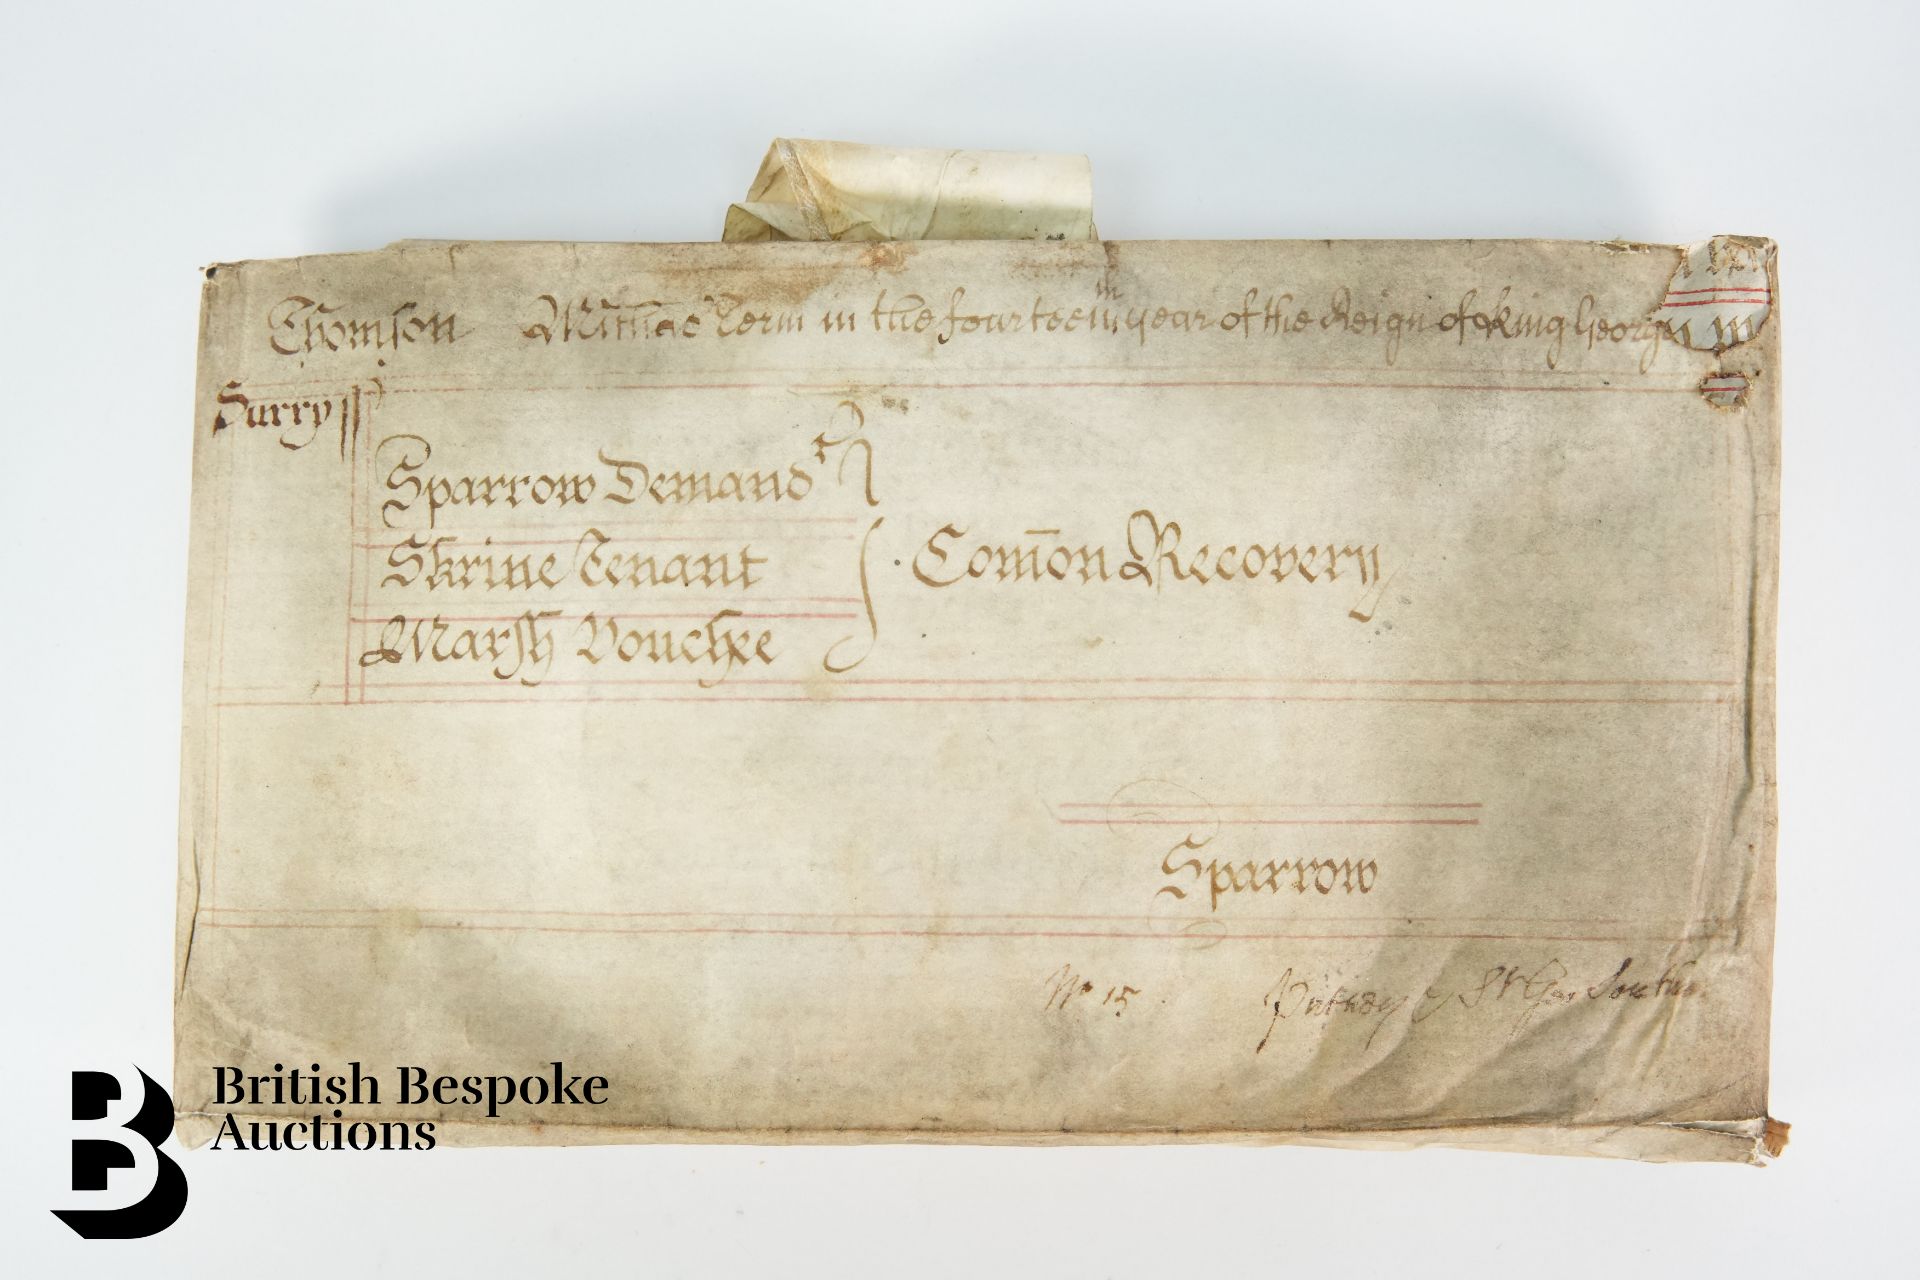 Thomson Michas Term in the fourteenth year of the Reign of King George
Surry
Sparrow Demandt
Skrine Tenant
Marsh Vouchee
Com̄on Recovery
Sparrow
No 15 Putney St Geo
British Bespoke
Auctions